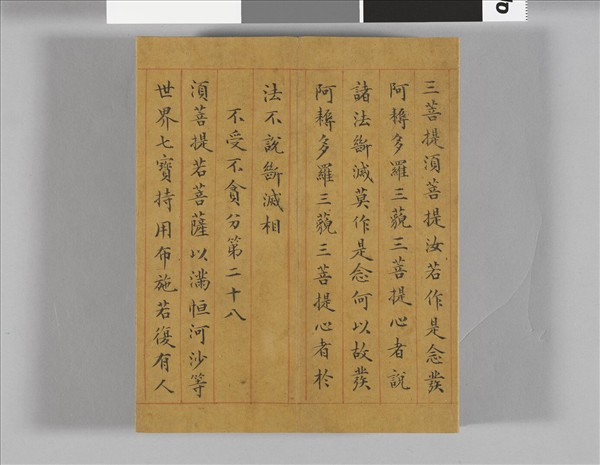 三菩提須菩提汝若作是念發
阿耨多羅三藐三菩提心者說
諸法斷滅莫作是念何以故發
阿耨多羅三藐三菩提心者於
法不說斷滅相
不受不貪分第二十八
須菩提若菩薩以滿恒河沙等
世界七寶持用布施若復有人